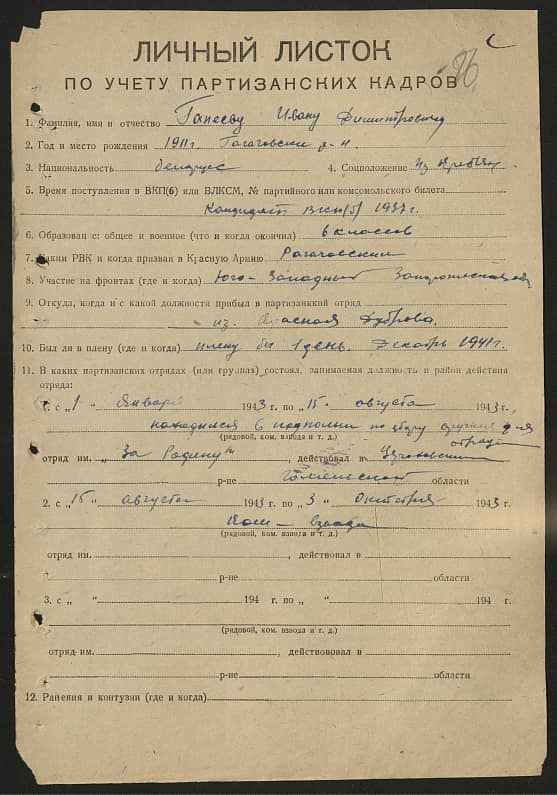 86
ЛИЧНЫЙ ЛИСТОК
ПО УЧЕТУ ПАРТИЗАНСКИХ КАДРОВ
1. Фамилия, имя и отчество Ивану Димитровичу
2. Год и место рождения 1911 г. р-н.
3. Национальность беларус 4. Соцположение из
5. Время поступления в ВКП(б) или ВЛКСМ, № партийного или комсомольского билета
Кандидат ВКП(б) 1937 г.
6. Образование: общее и военное (что и когда окончил) 6 классов
7. Каким РВК и когда призван в Красную Армию Рагачовский
8. Участие на фронтах (где и когда) Юго-Западный
9. Откуда, когда и с какой должности прибыл в партизанский отряд
из Красная Дуброва.
10. Был ли в плену (где и когда) плену был 1 день. Декабрь 1941 г.
11. В каких партизанских отрядах (или группах) состоял, занимаемая должность и район действия
отряда:
1. с „1 “ Января 1943 г. по „15 “ августа 1943 г.,
находился в подполии по збору оружия для
(рядовой, ком. взвода и т. д.) отряда
отряд им. „За Родину“, действовал в
р-не Гомельской области
2. с „15 “ августа 1943 г. по „3 “ Октября 1943 г.
Ком-взвода
(рядовой, ком. взвода и т. д.)
отряд им. , действовал в
р-не области
3. с „ “ 194 г. по „ “ 194 г.
(рядовой, ком. взвода и т. д.)
отряд им. , действовал в
р-не области
12. Ранения и контузии (где и когда)